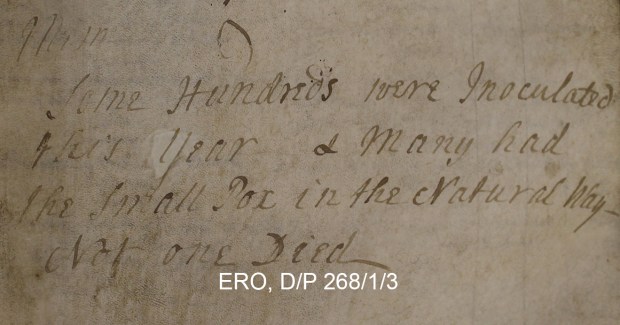 Mem
Some Hundreds were Inoculated
this Year & Many had
the Small Pox in the Natural Way-
Not one Died
ERO, D/P 268/1/3